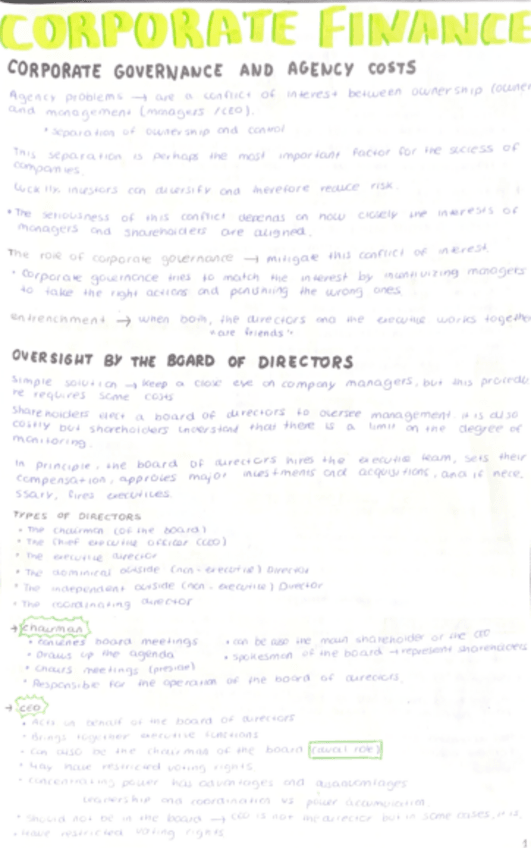 CORPORATE FINANCE
CORPORATE GOVERNANCE AND AGENCY COSTS
Agency problems → are a conflict of interest between ownership (owner
and management (managers / CEO).
• separation of ownership and control
This separation is perhaps the most important factor for the success of
companies.
Luckily, investors can diversify and therefore reduce risk.
• The seriousness of this conflict depends on how closely the interests of
managers and shareholders are aligned.
The role of corporate governance → mitigate this conflict of interest.
• Corporate governance tries to match the interest by incentivizing managers
to take the right actions and punishing the wrong ones.
entrenchment → when both, the directors and the executive works together
"are friends"
OVERSIGHT BY THE BOARD OF DIRECTORS
Simple solution → keep a close eye on company managers, but this procedu
re requires some costs
Shareholders elect a board of directors to oversee management. It is also
costly but shareholders understand that there is a limit on the degree of
monitoring.
In principle, the board of directors hires the executive team, sets their
compensation, approves major investments and acquisitions, and if nece,
ssary, fires executives.
TYPES OF DIRECTORS
• The chairman (of the board)
• The Chief executive officer (CEO)
• The executive director
• The dominical outside (non-executive) Director
• The independent outside (non-executive) Director
• The coordinating director
→ chairman
• convenes board meetings
• Draws up the agenda
• Chairs meetings (preside)
• Responsible for the operation of the board of directors.
• can be also the main shareholder or the CEO
• spokesman of the board → represent shareholders
→ CEO
• Acts on behalf of the board of directors
• Brings together executive functions
• Can also be the chairman of the board (dual role)
• May have restricted voting rights
• concentrating power has advantages and disadvantages
Leadership and coordination vs power accumulation
• Should not be in the board → CEO is not the director but in some cases, it is,
• Have restricted voting rights
1